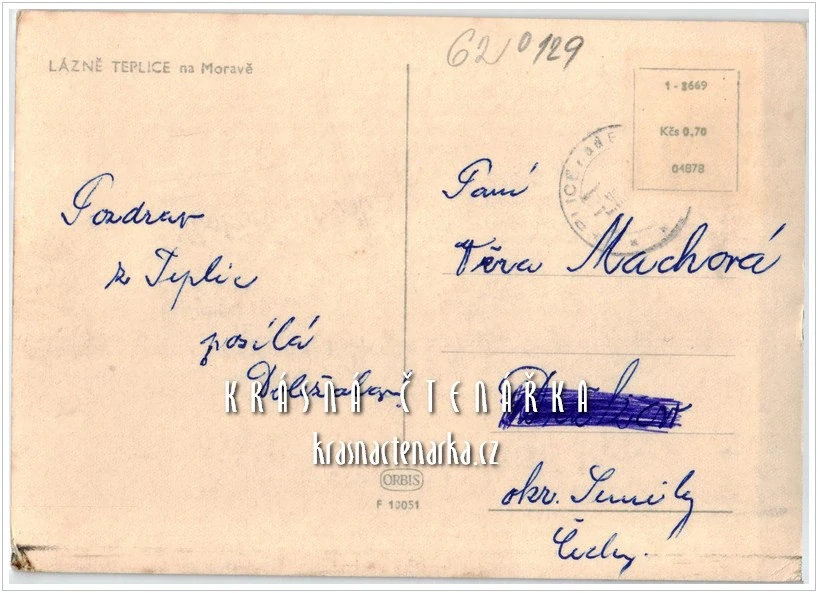 LÁZNĚ TEPLICE na Moravě
620129
1-3669
Kčs 0,70
04878
Pozdrav
z Teplic
posílá
Paní
Věra Machová
okr. Semily
Čechy.
KRÁSNÁ ČTENÁŘKA
krasnactenarka.cz
ORBIS
F 10051